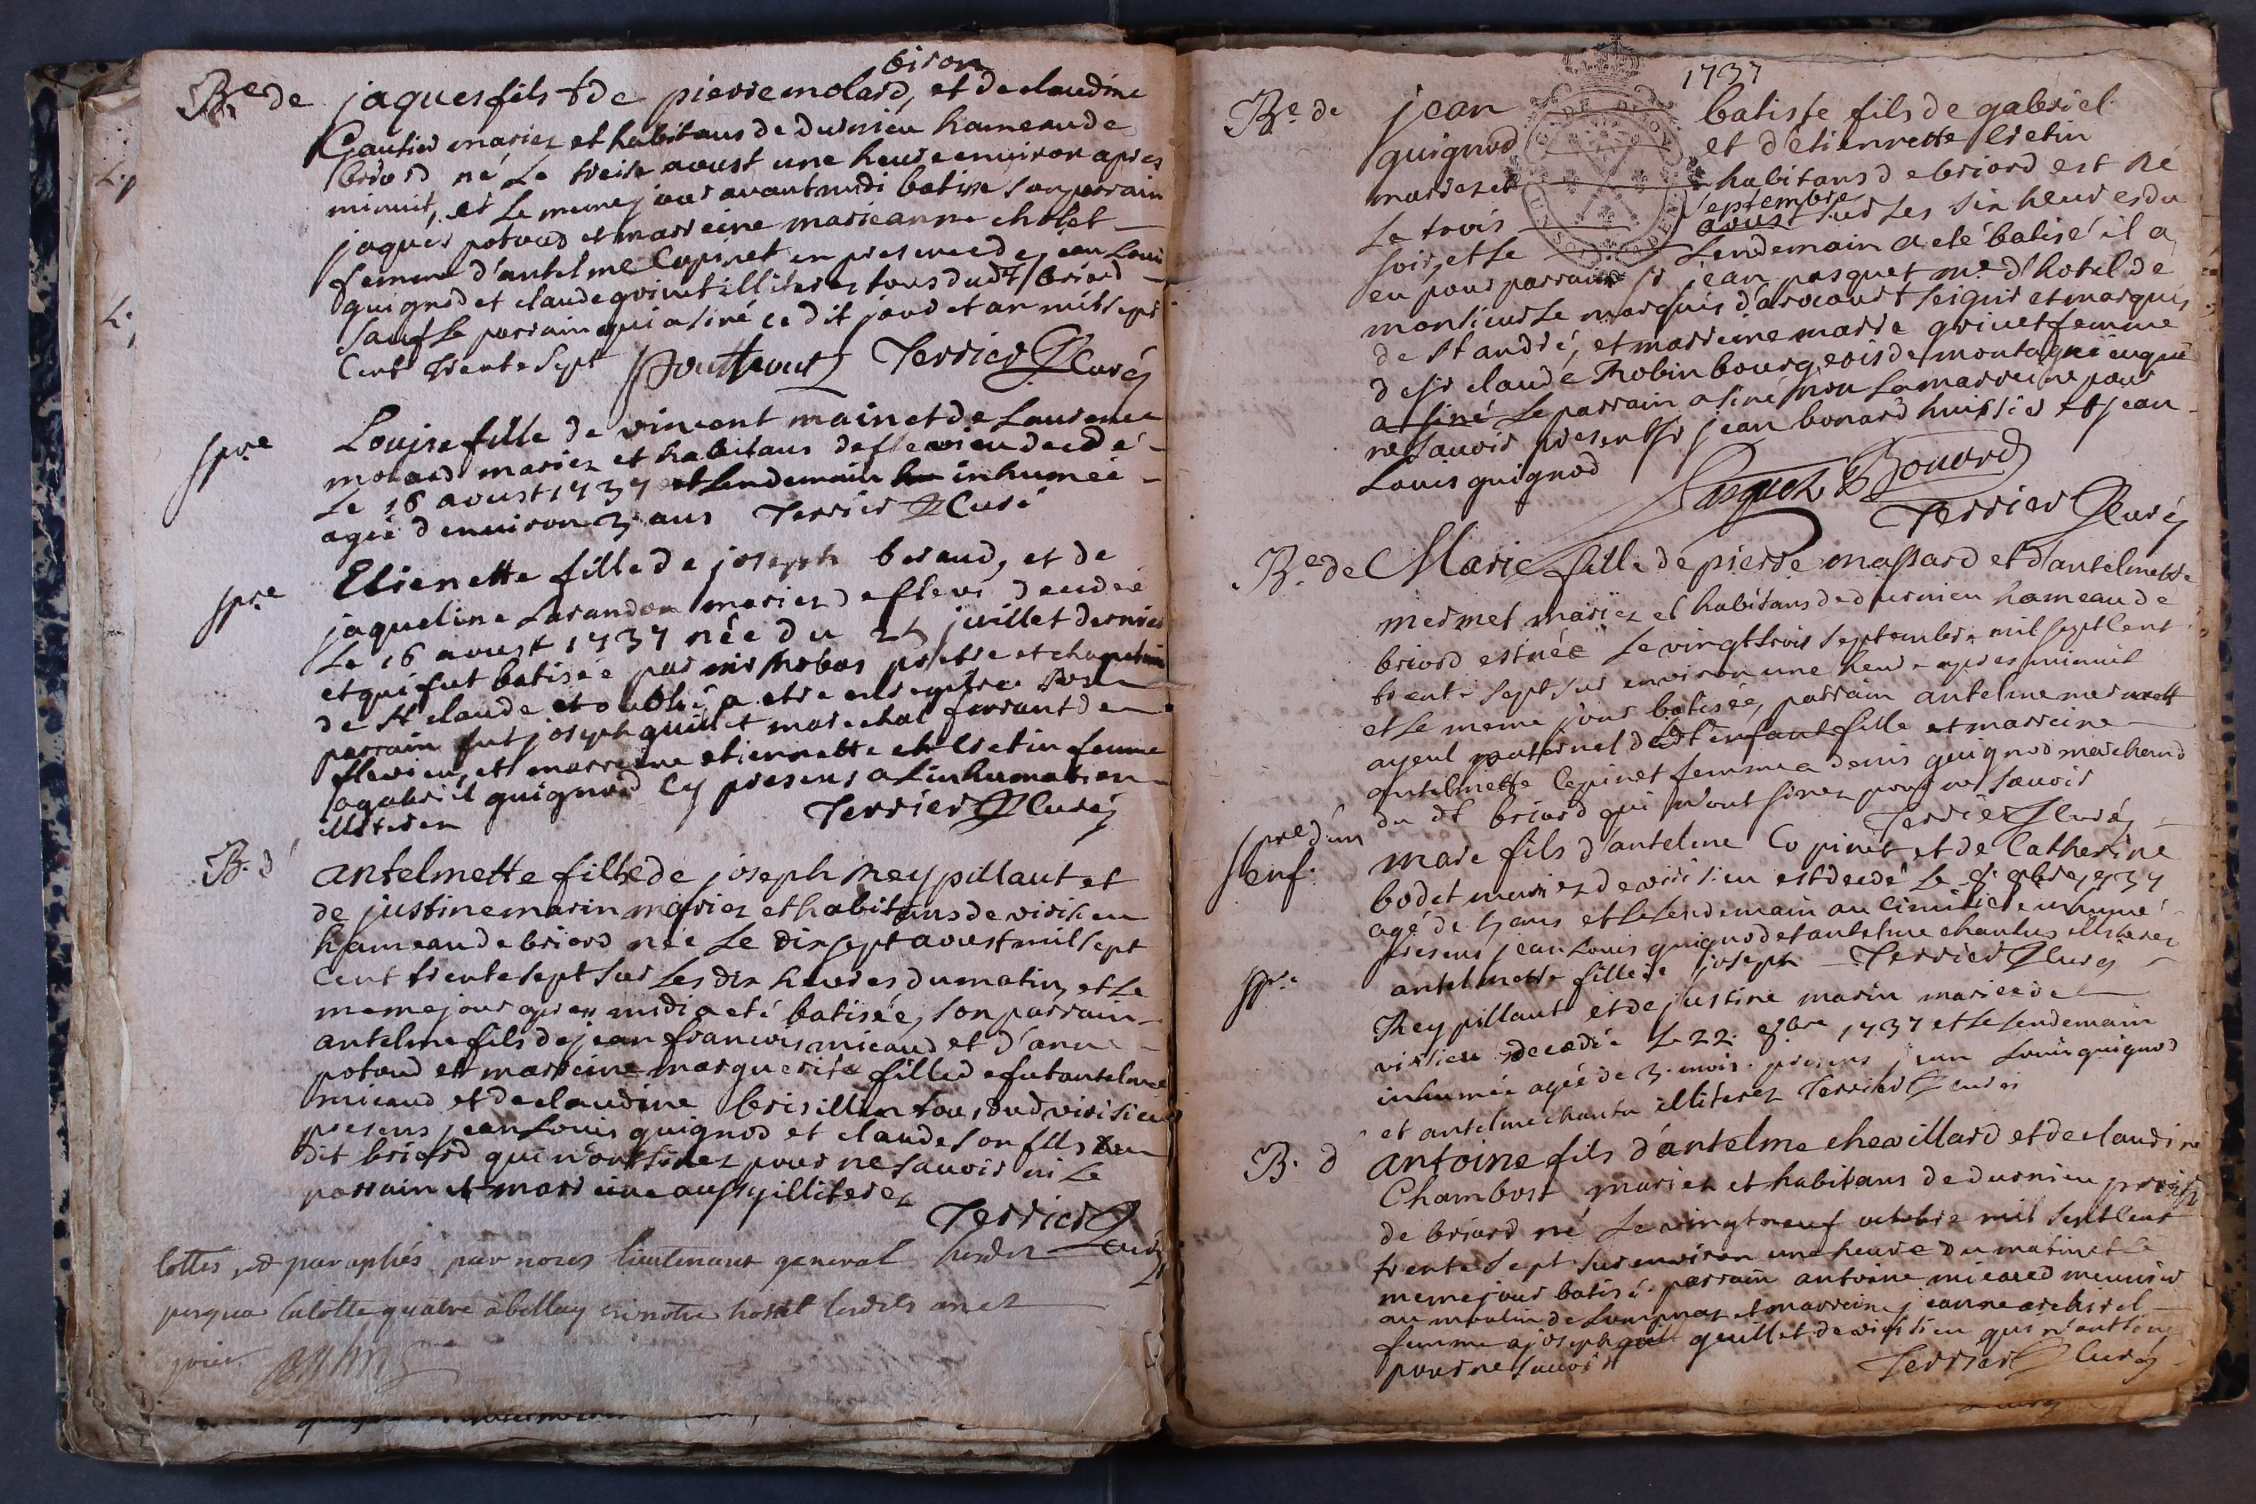 bison
Bme de jaques fils + de pierre molard, et de claudine
Gautier mariez et habitans de dornieu hameau de
briord né le treise aoust une heure environ apres
minuit, et le meme jour avant midi batisé son parrain
jaques potoud et marreine marieanne cholet
femme d'antelme Copinet en presence de jean Louis
quignod et claude grinet illiterez tous dudt briord
sauf le parrain qui a siné ce dit jour et an mil sept
Cent trente sept Terrier Curé
spre Louise fille de vincent main et de Laurence
molard mariez et habitans de flevieu decedé
Le 16 aoust 1737 et lendemain inhumeé
ageé d'environ 3 ans Terrier Curé
spre Etienette fille de joseph beraud, et de
jaqueline Larandon mariez de flevi decedeé
Le 16 aoust 1737 née du 25 juillet dernier
et qui fut batisée par pretre et chapelain
de St claude et oublié a etre enregistre son
parrain fut joseph quillet marechal ferrant de
flevieu, et marreine etiennette cretin femme
a gabriel quignod Cy presens a l'inhumation
illiterez Terrier Curé
B. d' antelmette fille de joseph Reypillaut et
de justine marin mariez et habitans de virisieu
hameau de briord neé le dix sept aoust mil sept
Cent trente sept sur les dix heures du matin, et le
meme jour apres midi a eté batiseé, son parrain
antelme fils de jean francois micaud et d'anne
potoud et marreine marguerite fille de fut antelme
micaud et de claudine brisillon tous dud virisieu
presens jean Louis quignod et claude son fils du
dit briord qui n'ont sinez pour ne savoir ni le
parrain et marreine aussy illiterez
Terrier Curé
cottes et paraphés par nous lieutenant general
jusqua la cotte quatre a bellay en notre hostel lesdits an et
jour
1737
Be de jean batiste fils de gabriel
quignod et d'etiennette Cretin
mariez et habitans de briord est né
Le trois septembre aoust sur les six heures du
soir, et le Lendemain a eté batisé il a
eu pour parrain sr jean pasquet me d'hotel de
monsieur le marquis d'arocourt seignr et marquis
de St andré, et marreine marie grinet femme
de sr claude Robin bourgeois de montagnieu qui
a siné le parrain a siné non la marreine pour
ne savoir presents sr jean bonard huissier et jean
Louis quignod
Pasquet Bonard
Terrier Curé
Be de Marie fille de pierre massard et d'antelmette
mermet mariez et habitans de durnieu hameau de
briord est née le vingt trois septembre mil sept Cent
trente sept sur environ une heure apres minuit
et le meme jour batiseé, parrain antelme mermett
ayeul paternel dudt enfant fille et marreine
antelmette Copinet femme a denis quignod marchand
du dt briord qui n'ont sinez pour ne savoir
Terrier Curé
spre d'un enf. marc fils d'antelme Copinet et de Catherine
bodet mariez de virisieu est decedé le 9bre 1737
agé de 5 ans et le lendemain au cimitiere inhumé
presens jean Louis quignod et antelme chantus illiterez
Terrier Curé
spre antelmette fille de joseph
Reypillaut et de justine marin mariez de
virisieu decedée le 22 9bre 1737 et le lendemain
inhumée ageé de 3. mois. presens jean Louis quignod
et antelme chantu illiterez Terrier Curé
B. d' antoine fils d'antelme chevillard et de claudine
Chambost mariez et habitans de durnieu
de briord né le vingt neuf octobre mil sept Cent
trente sept sur environ une heure du matin et le
meme jour batisé. parrain antoine micoud meunier
au moulin de Lompnaz et marreine jeanne
femme a joseph quillet de virisieu qui n'ont siné
pour ne savoir Terrier Curé